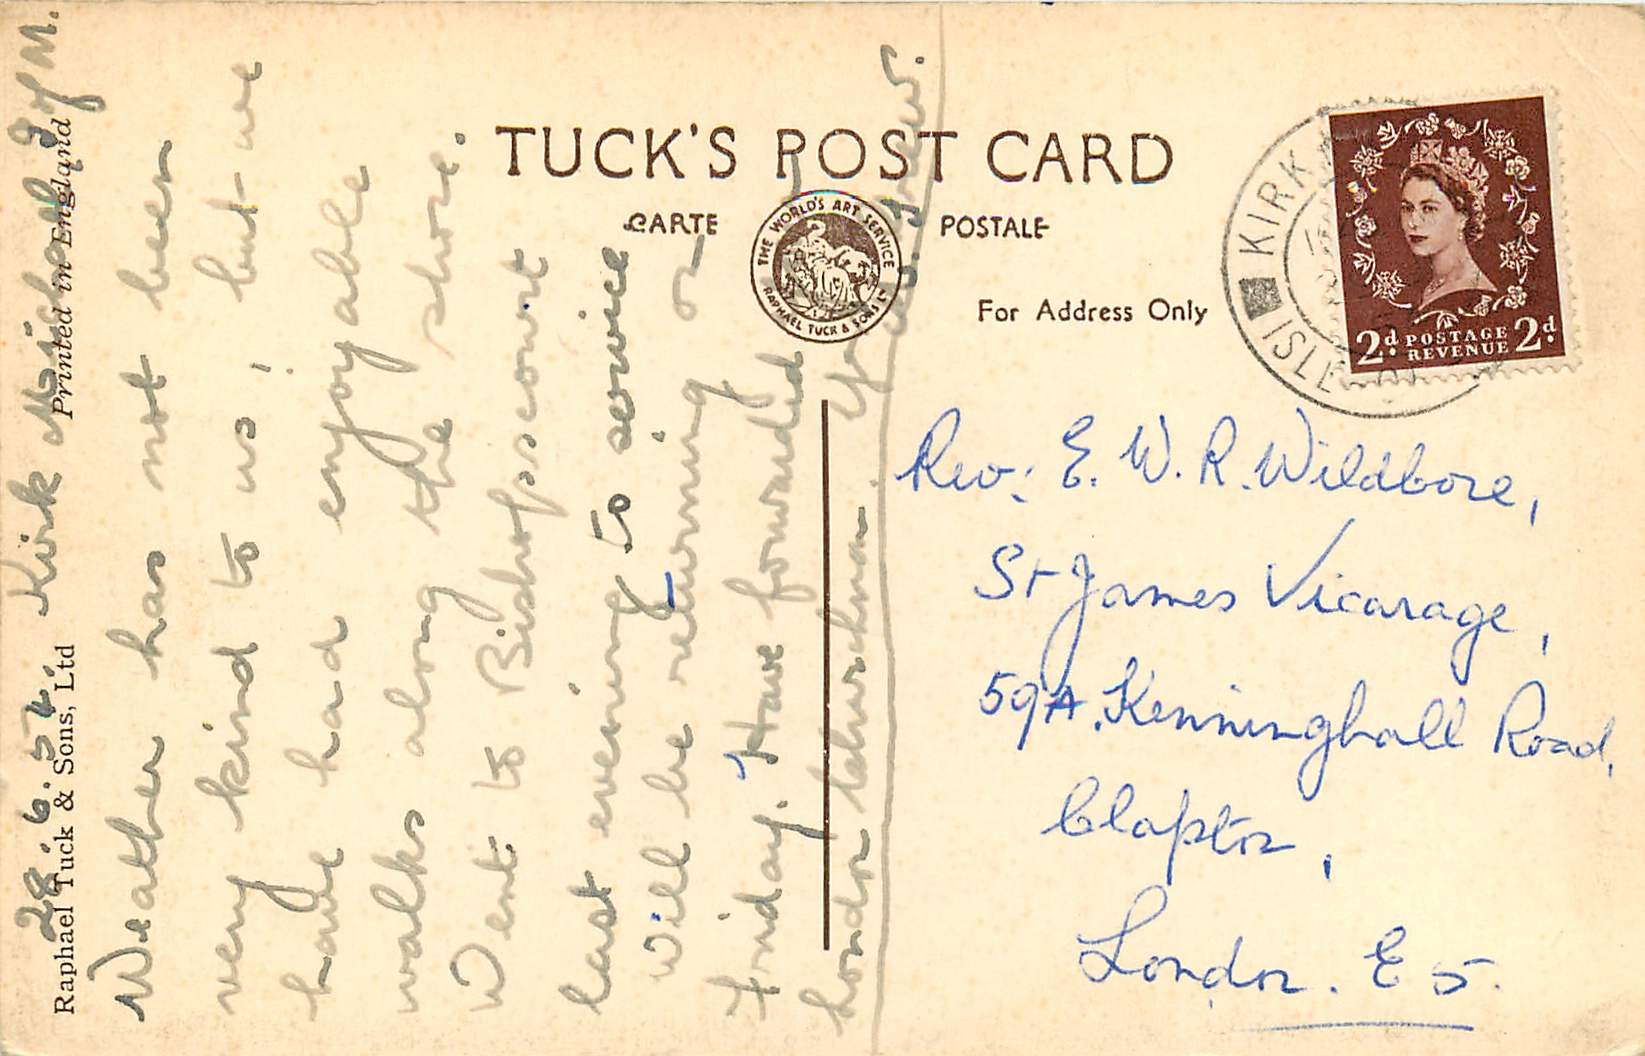 TUCK'S POST CARD
CARTE POSTALE
THE WORLD'S ART SERVICE
RAPHAEL TUCK & SONS LTD
For Address Only
KIRK
ISLE
2d POSTAGE REVENUE 2d
Raphael Tuck & Sons, Ltd
Printed in England
28.6.54. Kirk Michael IofM.
Weather has not been
very kind to us, but we
have had enjoyable
walks along the shore.
Went to Bishopscourt
last evening to service
Will be returning on
Friday. Have forwarded
London Churchman.
Andrew.
Rev: E. W. R. Wildbore,
St James Vicarage,
59A. Kenninghall Road,
Clapton,
London. E 5.